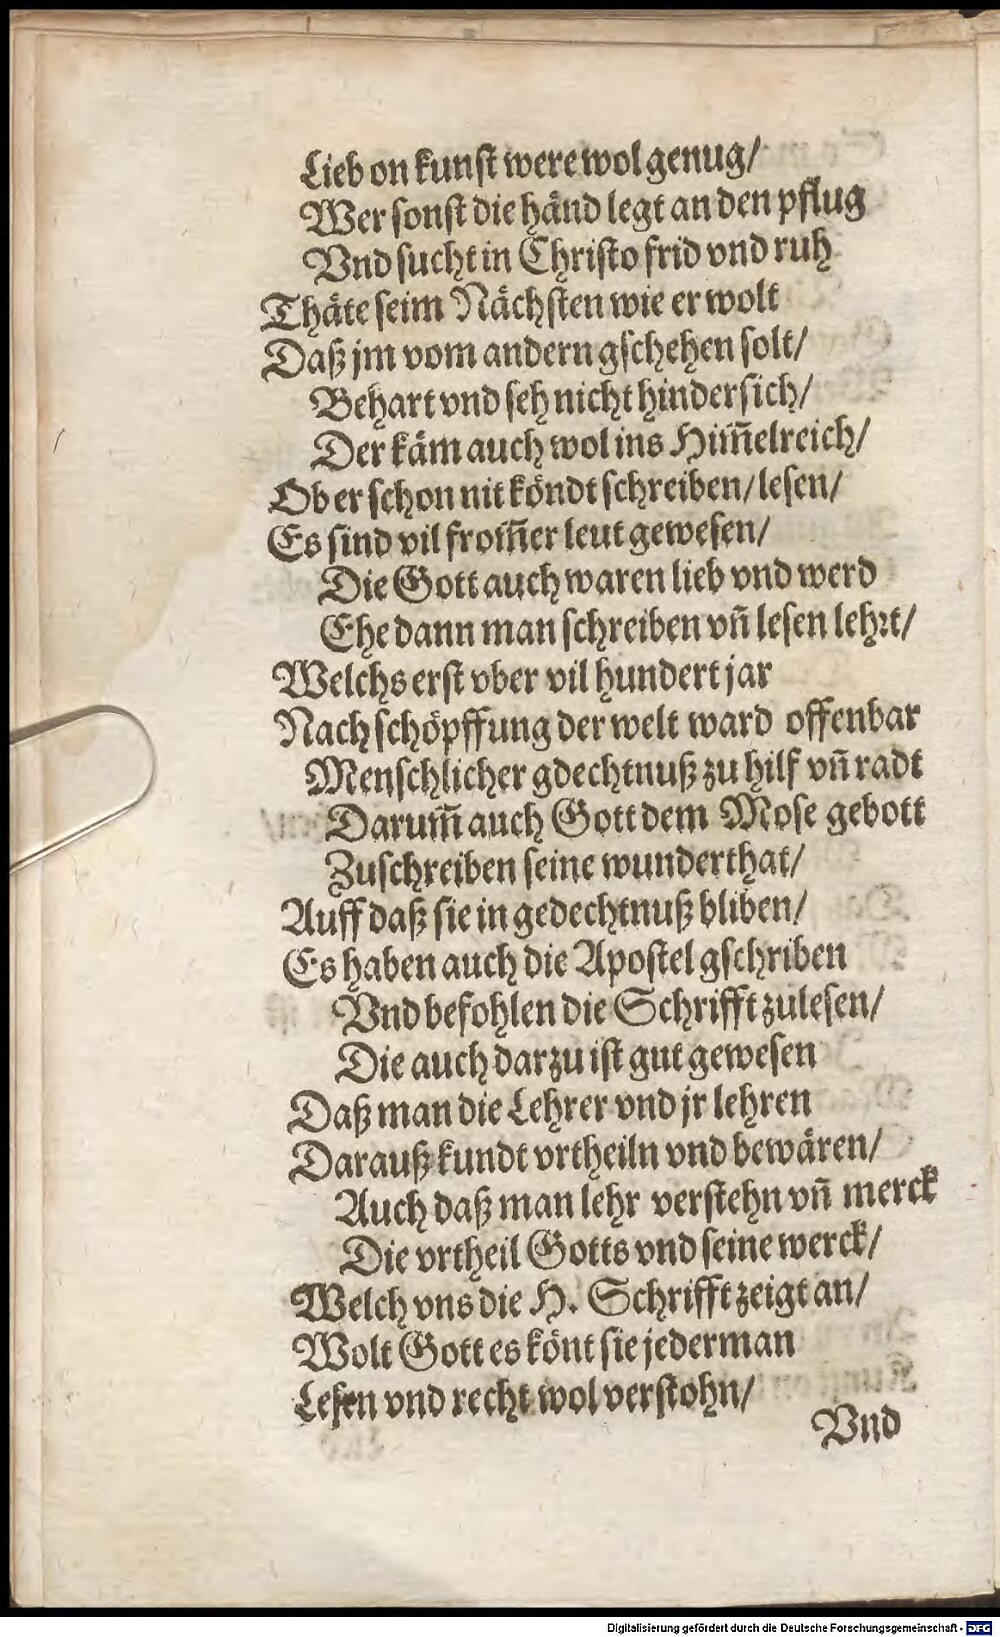 Lieb on kunſt were wol genug/
Wer ſonſt die händ legt an den pflug
Vnd ſucht in Chriſto frid vnd ruh
Thäte ſeim Nächſten wie er wolt
Daß jm vom andern gſchehen ſolt/
Behart vnd ſeh nicht hinderſich/
Der käm auch wol ins Him̃elreich/
Ob er ſchon nit köndt ſchreiben/ leſen/
Es ſind vil from̃er leut geweſen/
Die Gott auch waren lieb vnd werd
Ehe dann man ſchreiben vñ leſen lehꝛt/
Welchs erſt vber vil hundert jar
Nach ſchöpffung der welt ward offenbar
Menſchlicher gdechtnuß zu hilf vñ radt
Darum̃ auch Gott dem Moſe gebott
Zuſchreiben ſeine wunderthat/
Auff daß ſie in gedechtnuß bliben/
Es haben auch die Apoſtel gſchriben
Vnd befohlen die Schrifft zuleſen/
Die auch darzu iſt gut geweſen
Daß man die Lehrer vnd jr lehren
Darauß kundt vrtheiln vnd bewären/
Auch daß man lehr verſtehn vñ merck
Die vrtheil Gotts vnd ſeine werck/
Welch vns die H. Schrifft zeigt an/
Wolt Gott es könt ſie jederman
Leſen vnd recht wol verſtohn/
Vnd
Digitalisierung gefördert durch die Deutsche Forschungsgemeinschaft - DFG